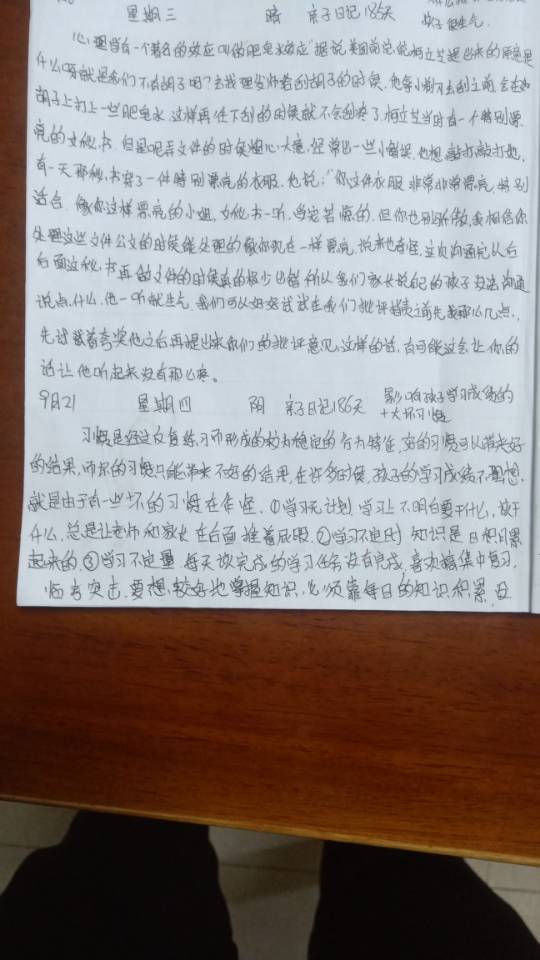 星期三 晴 亲子日记185天 孩子很生气.
心理学有一个著名的效应叫做肥皂水效应"据说美国前总统柯立芝提出来的原意是
什么呀就是我们不有胡子吗?去找理发师看刮胡子的时候,他每小刷下去刮之前,会在你
胡子上打上一些肥皂水.这样再往下刮的时候就不会刮疼了,柯立芝当时有一个特别漂
亮的女秘书,但是呢弄文件的时候粗心大意,经常出一些小错误,他想敲打敲打她,
有一天那秘书穿了一件特别漂亮的衣服,他说:"你这件衣服非常非常漂亮,特别
适合像你这样漂亮的小姐,女秘书一听,当然若惊的.但你也别骄傲,我相信你
处理这些文件公文的时候能处理的像你现在一样漂亮,说来也奇怪,立页沟通完从后
后面这秘书再做文件的时候真的极少出错所以我们家长说自己的孩子没法沟通
说点什么,他一听就生气,我们可以好好试试在我们批评指责之前先来那么几点,
先试试着夸奖他之后再提出来你们的批评意见,这样的话,有可能这会让你的
话让他听起来没有那么疼。
9月21 星期四 阴 亲子日记186天 影响孩子学习成绩的
十大坏习惯
习惯是经过反复练习而形成的较为稳定的行为特征,好的习惯可以带来好
的结果,而坏的习惯只能带来不好的结果,在许多时候,孩子的学习成绩不理想,
就是由于有一些坏的习惯在作怪.①学习无计划 学习上不明白要干什么,该干
什么,总是让老师和家长在后面推着成股.②学习不定时 知识是日积月累
起来的,③学习不定量 每天该完成的学习任务没有完成,喜欢搞集中复习,
临考突击,要想较好地掌握知识,必须靠每日的知识积累,且